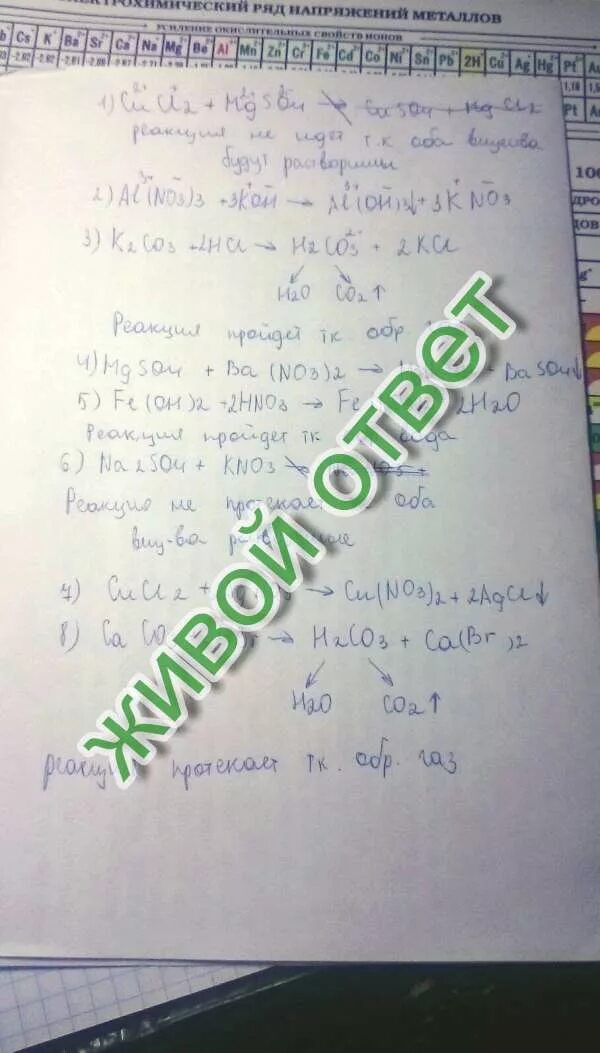 ЭЛЕКТРОХИМИЧЕСКИЙ РЯД НАПРЯЖЕНИЙ МЕТАЛЛОВ
УСИЛЕНИЕ ОКИСЛИТЕЛЬНЫХ СВОЙСТВ ИОНОВ
Cs K Ba Sr Ca Na Mg Be Al Mn Zn Cr Fe Cd Co Ni Sn Pb 2H Cu Ag Hg Pt Au
1) CuCl2 + MgSO4 → CuSO4 + MgCl2
реакция не идет т.к оба вещества
будут растворимы
2) Al(NO3)3 + 3KOH → Al(OH)3↓ + 3KNO3
3) K2CO3 + 2HCl → H2CO3 + 2KCl
H2O CO2↑
Реакция пройдет т.к. обр.
4) MgSO4 + Ba(NO3)2 → + BaSO4↓
5) Fe(OH)2 + 2HNO3 → Fe 2H2O
Реакция пройдет т.к
6) Na2SO4 + KNO3
Реакция не протекает оба
вещ-ва
7) CuCl2 + → Cu(NO3)2 + 2AgCl↓
8) CaCO → H2CO3 + Ca(Br)2
H2O CO2↑
реакция протекает т.к. обр. газ
ЖИВОЙ ОТВЕТ